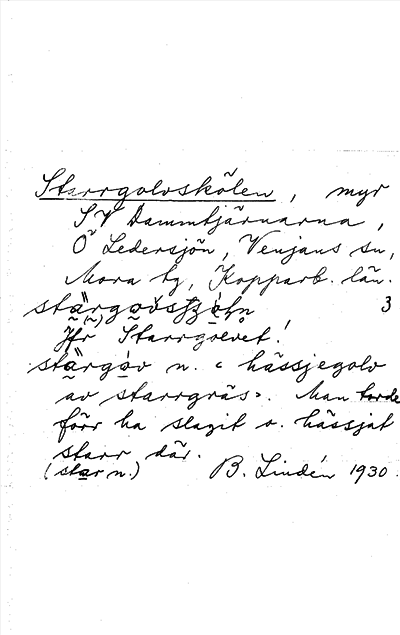 Starrgolvskölen, myr
SV Dammtjärnarna,
Ö Ledersjön, Venjans sn,
Mora tg, Kopparb. län.
3
Jfr Starrgrevet!
stärgov n. « hässjegolv
av starrgräs». Man torde
förr ha slagit o. hässjat
starr där.
(star n.) B. Lindén 1930.